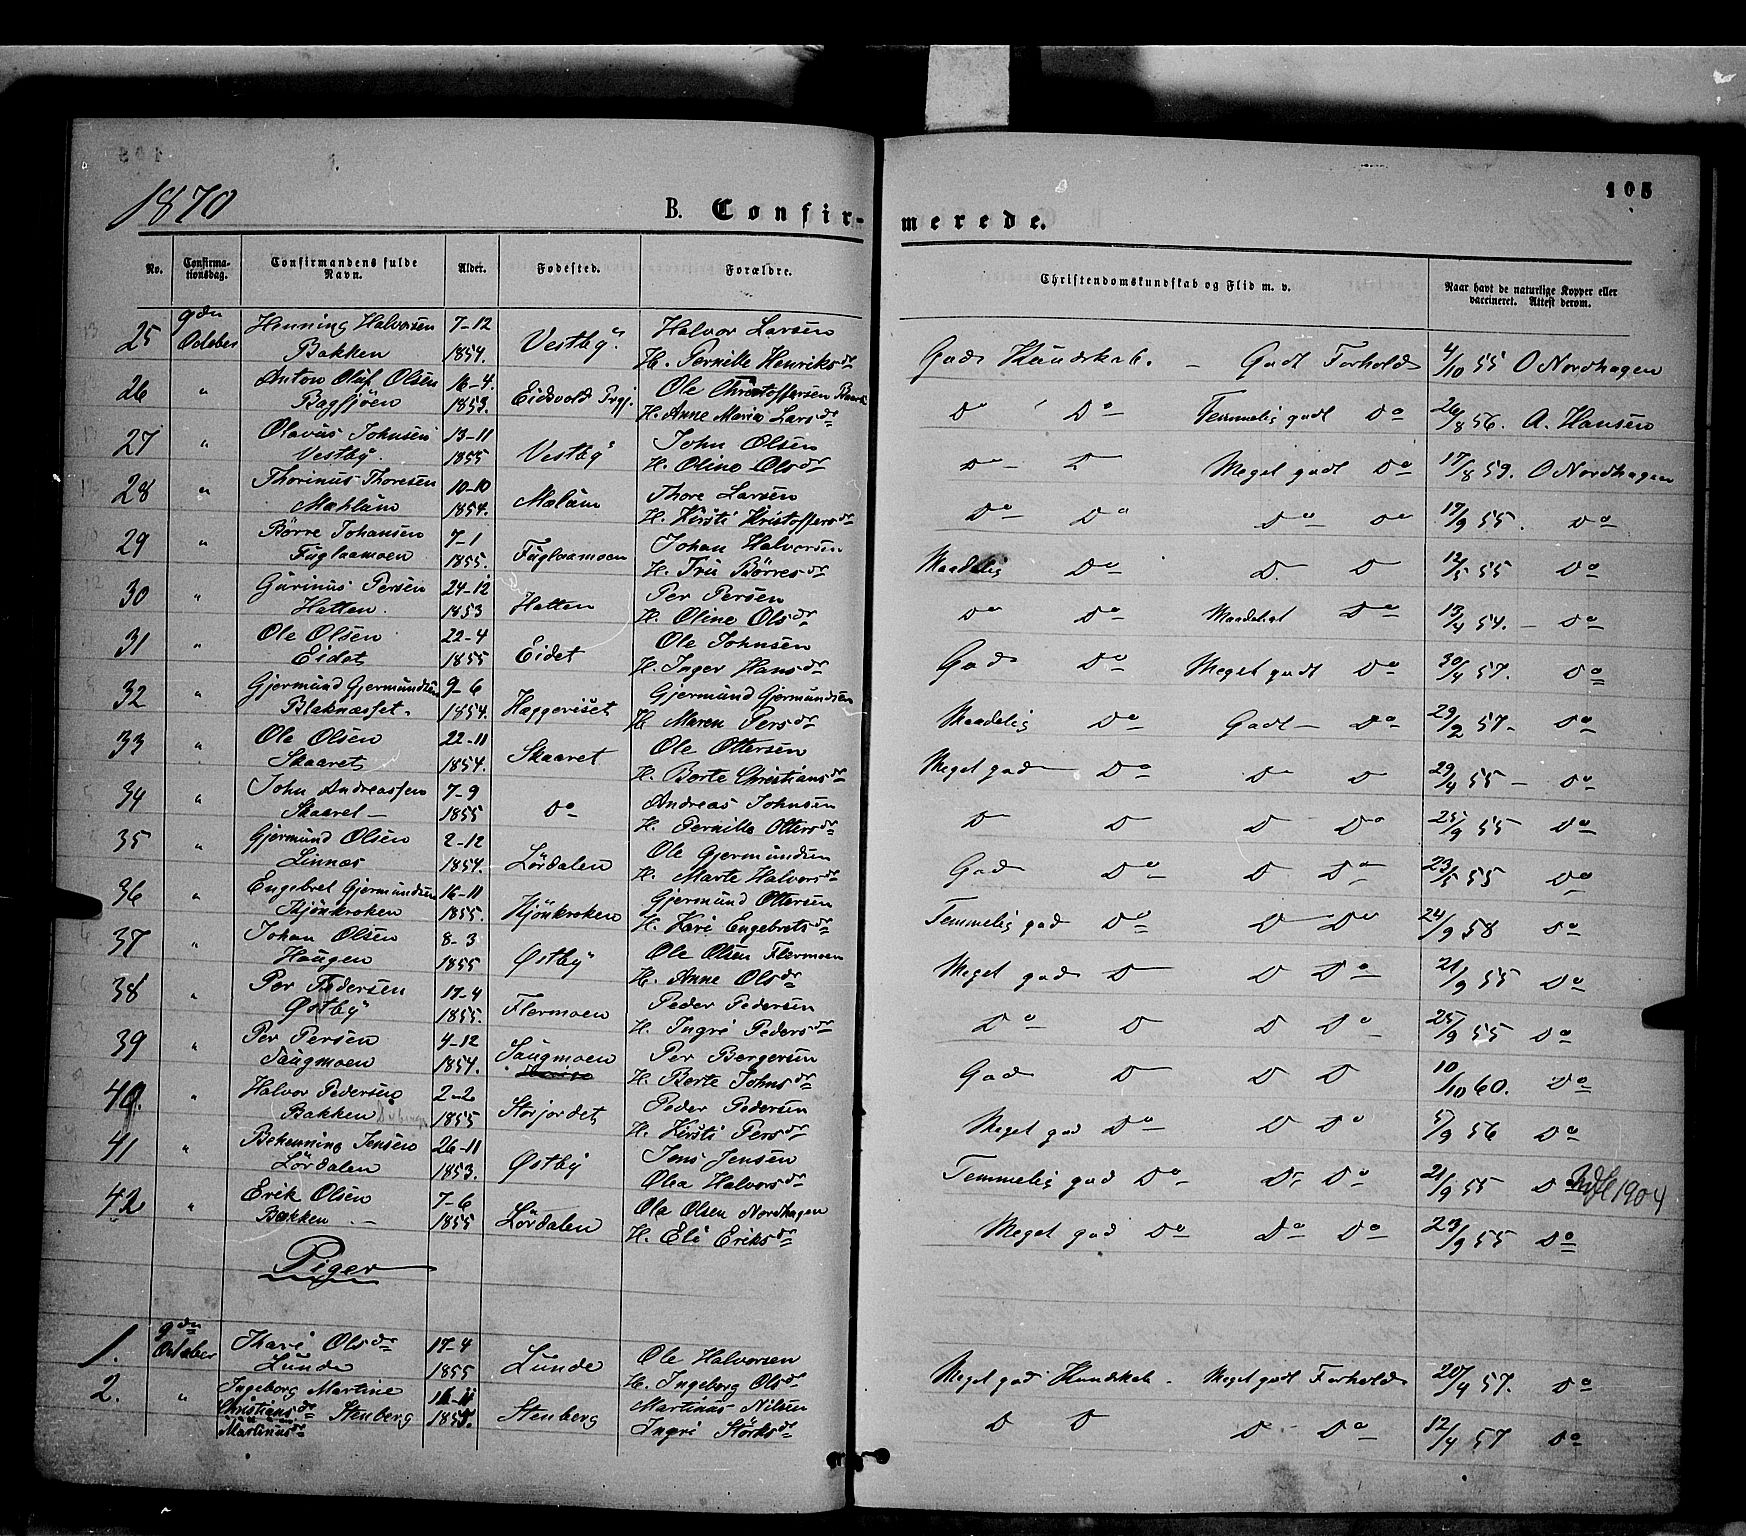 1870
B. Confir-
merede.
105
No.
Confirma-
tionsdag.
Confirmandens fulde
Navn.
Alder.
Fødested.
Forældre.
Christendomskundskab og Flid m. v.
Naar havt de naturlige Kopper eller
vaccineret. Attest derom.
25 9de October Henning Halvorsen Bakken 7-12 1854. Vestby. Halvor Larsen H. Pernille Henriksdr God Kundskab. - Godt Forhold 4/10 55 O Nordhagen
26 " Anton Oluf Olsen Bagsjöen 16-4. 1853. Eidsvold Prgj. Ole Christoffersen H. Anne Maria Larsdr Do Do Temmelig godt Do 26/8 56. A. Hansen
27 " Olavus Johnsen Vestby. 13-11 1855 Vestby John Olsen H. Oline Olsdr Do - D Meget godt Do 17/8 59. O Nordhagen
28 " Thorinus Thoresen Mæhlum 10-10 1854. Mælum Thore Larsen H. Kirsti Kristoffersdr Do Do Do Do 19/9 55. Do
29 " Börre Johansen Fuglaamoen 7-1 1855. Fuglaamoen Johan Halvorsen H. Börresdr Maadelig Do D. D 12/5 55 Do
30 " Gurinus Persen Hatten. 24-12 1853 Hatten Per Persen H. Oline Olsdr Do Do Maadeligt Do 13/4 54. - Do
31 " Ole Olsen Eidet 22-4 1855 Eidet Ole Johnsen H. Inger Hansdr God Do Meget godt Do 30/4 57. Do
32 " Gjermund Gjermundsen Blaknæsset. 9-6 1854. Haggeriset Gjermund Gjermundsen H. Maren Persdr Maadelig Do Godt - Do 29/2 57- Do
33 " Ole Olsen Skaaret 22-11 1854. Skaaret Ole Ottersen H. Berte Christiansdr Meget god Do D D 29/4 55 - Do
34 " John Andreassen Skaaret - 7-9 1855 Do Andreas Johnsen H. Pernille Ottersdr D D D Do 25/9 55 Do
35 " Gjermund Olsen Linnæs 2-12 1854. Lördalen Ole Gjermundsen H. Marte Halvorsdr God Do D Do 23/5 55 Do
36 " Engebret Gjermundsen Kjönkroken 16-11 1855. Kjönkroken Gjermund Ottersen H. Kari Engebretsdr Temmelig god Do D Do 24/9 58 Do
37 " Johan Olsen Haugen 8-3 1855 Østby Ole Olsen Flermoen H. Anne Olsdr Meget god D D Do 21/9 55 Do
38 " Per Pedersen Østby 17-4 1855. Flermoen Peder Pedersen H. Ingri Pedersdr Do D D Do 25/9 55 Do
39 " Per Persen Taugmoen 4-12 1854. Taugmoen Per Bergersen H. Berte Johnsdr God D D D 10/10 60. Do
40. " Halvor Pedersen Bakken 2-2 1855 Storjordet Peder Pedersen H. Kirsti Persdr Meget god Do D Do 5/9 56 Do
41 " Behenning Jensen Lördalen 26-11 1853. Østby Jens Jensen Olea Halvorsdr Temmelig god Do D Do 21/9 55 Do 1904
42 " Erik Olsen Bakken - 7-6 1855 Lördalen Ola Olsen Nordhagen H. Eli Eriksdr Meget god Do Do Do 23/9 55 Do
Piger
1. 9de October Kari Olsdr Lunde 17-4 1855 Lunde Ole Halvorsen H. Ingeborg Olsdr Meget god Kundskab. Meget godt Forhold 20/4 57. Do
2. " Ingeborg Martine Christiansdr Stenberg Martinusdr 1855. Stenberg Martinus Nilsen Ingri Störksdr D D D - Do 12/4 57 Do